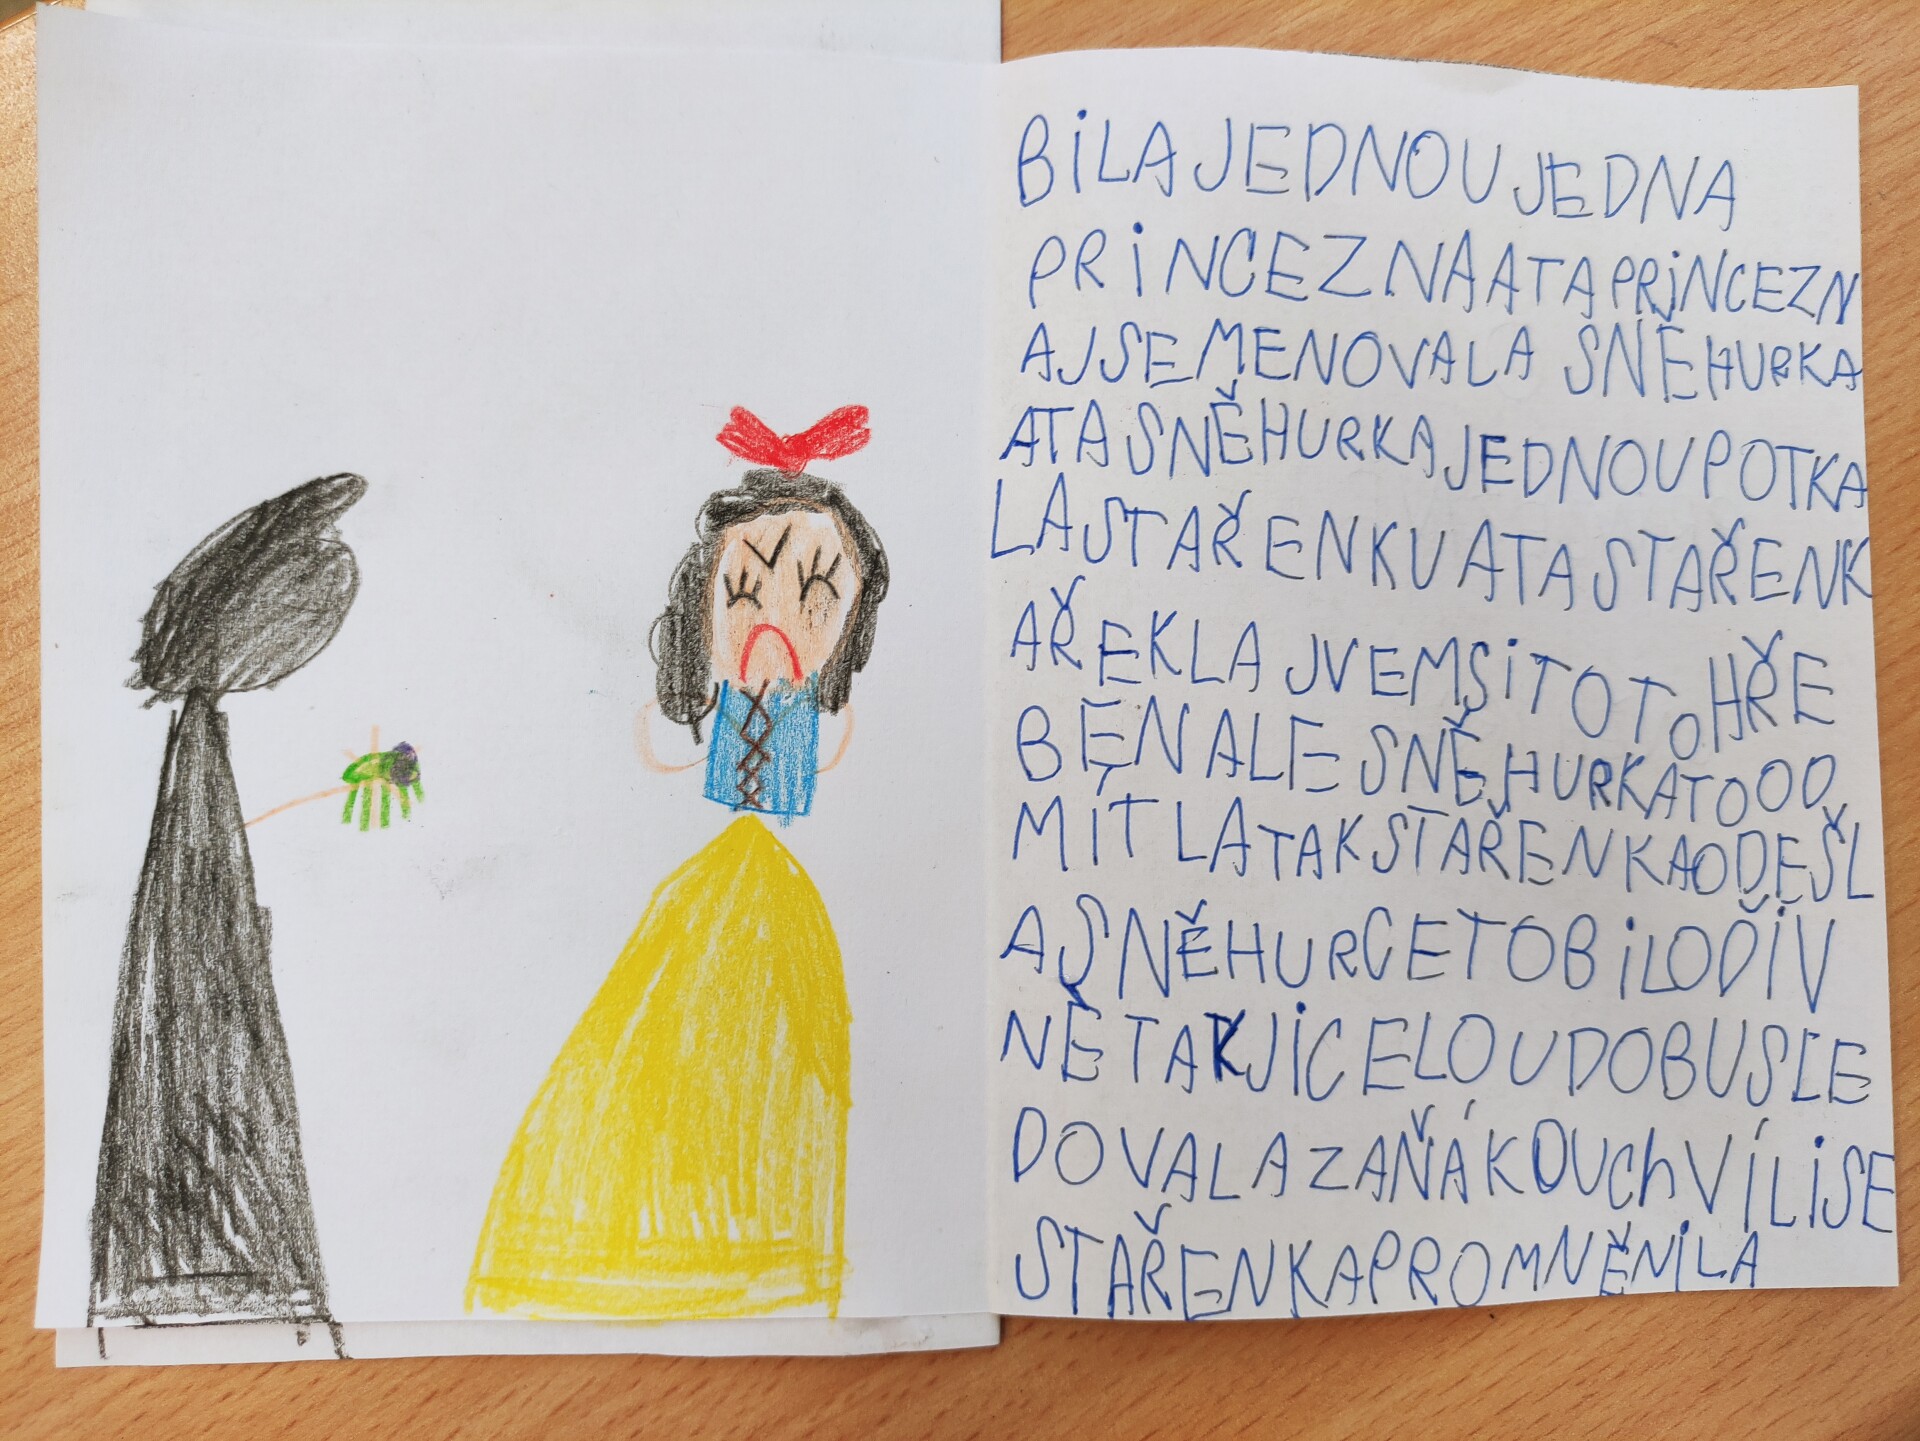 BiLA JEDNOU JEDNA
PRiNCEZNA A TA PRiNCEZN
A JSE MENOVALA SNĚHURKA
A TA SNĚHURKA JEDNOU POTKA
LA STAŘENKU A TA STAŘENK
A ŘEKLA JVEMSi TOTO HŘE
BEN ALE SNĚHURKA TO OD
MÍTLA TAK STAŘENKA ODEŠL
A SNĚHURCE TO BiLO ĎÍV
NĚ TAK Ji CELOU DOBU SLE
DOVALA ZA ŇÁKOUChVÍLi SE
STAŘENKA PROMNĚNiLA